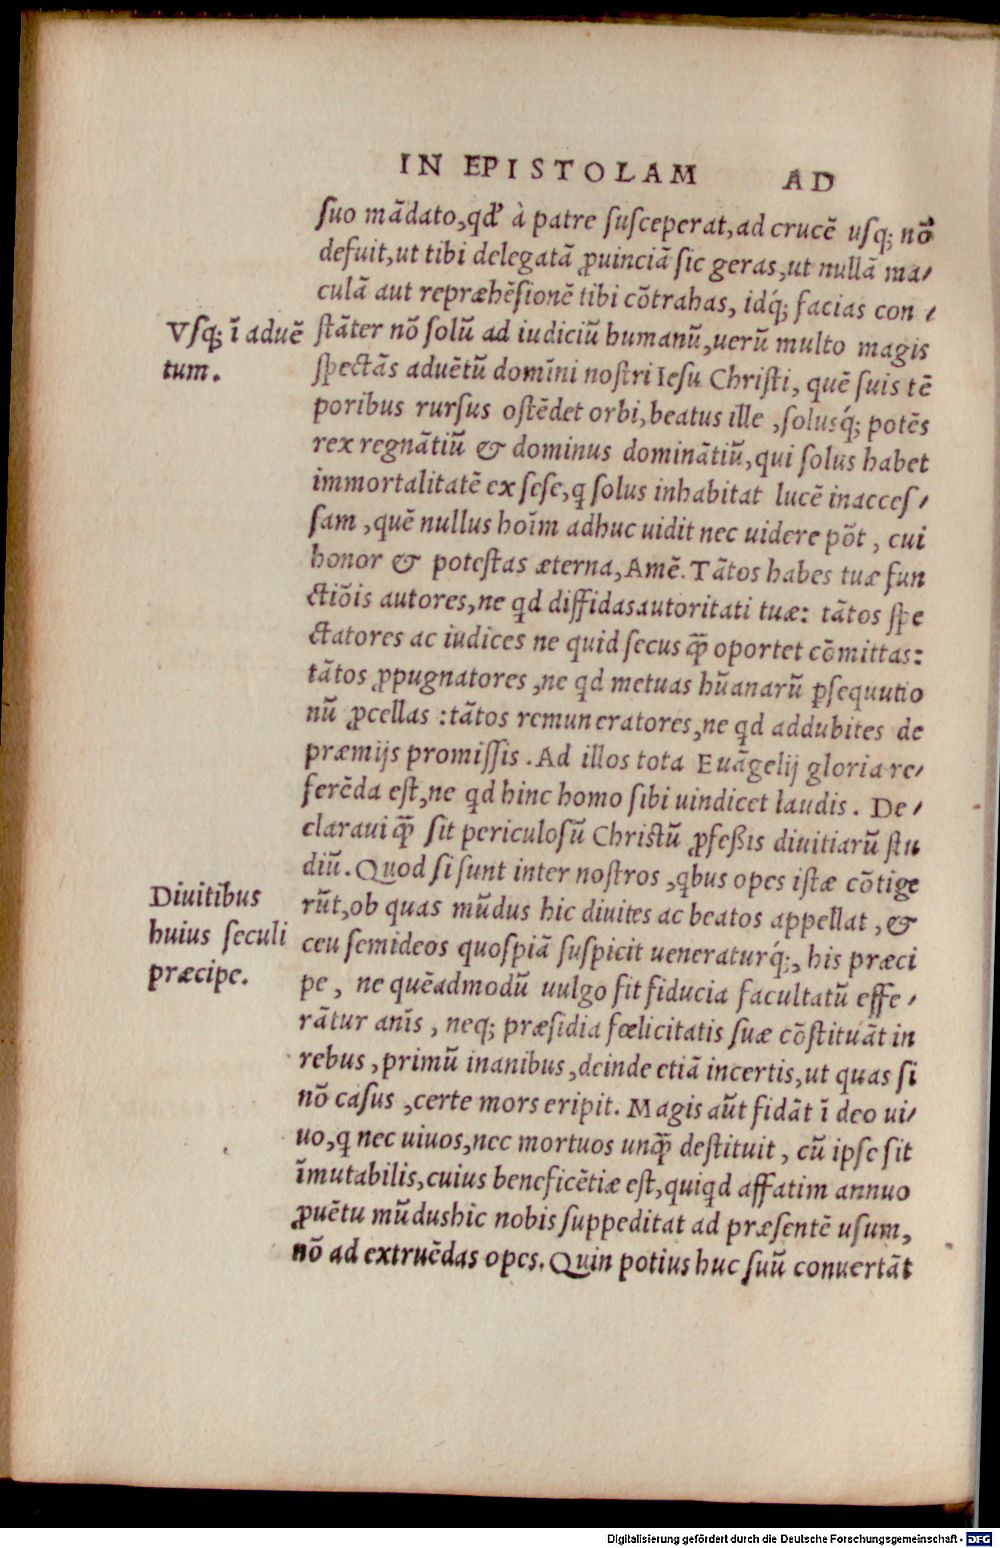 IN EPISTOLAM AD
ſuo mãdato, qđ à patre ſuſceperat, ad crucẽ uſq; nõ
defuit, ut tibi delegatã ꝓuinciã ſic geras, ut nullã ma/
culã aut repræhẽſionẽ tibi cõtrahas, idq́; facias con/
Vſq; ĩ aduẽ
tum.
ſtãter nõ ſolũ ad iudiciũ humanũ, uerũ multo magis
ſpectãs aduẽtũ domĩni noſtri Ieſu Chriſti, quẽ ſuis tẽ
poribus rurſus oſtẽdet orbi, beatus ille, ſolusq́; potẽs
rex regnãtiũ & dominus dominãtiũ, qui ſolus habet
immortalitatẽ ex ſeſe, q ſolus inhabitat lucẽ inacceſ/
ſam, quẽ nullus hoĩm adhuc uidit nec uidere põt, cui
honor & poteſtas æterna, Amẽ. Tãtos habes tuæ fun
ctiõis autores, ne qd diffidas autoritati tuæ: tãtos ſpe
ctatores ac iudices ne quid ſecus q̃ oportet cõmittas:
tãtos ꝓpugnatores, ne qd metuas hũanarũ ꝑſequutio
nũ ꝓcellas: tãtos remuneratores, ne qd addubites de
præmijs promiſſis. Ad illos tota Euãgelij gloria re/
ferẽda eſt, ne qd hinc homo ſibi uindicet laudis. De/
claraui q̃ ſit periculoſũ Chriſtũ ꝓfeßis diuitiarũ ſtu
diũ. Quod ſi ſunt inter noſtros, qbus opes iſtæ cõtige
Diuitibus
huius ſeculi
præcipe.
rũt, ob quas mũdus hic diuites ac beatos appellat, &
ceu ſemideos quoſpiã ſuſpicit ueneraturq́;, his præci
pe, ne quẽadmodũ uulgo fit fiducia facultatũ effe/
rãtur anĩs, neq; præſidia fœlicitatis ſuæ cõſtituãt in
rebus, primũ inanibus, deinde etiã incertis, ut quas ſi
nõ caſus, certe mors eripit. Magis aũt fidãt ĩ deo ui/
uo, q nec uiuos, nec mortuos unq̃ deſtituit, cũ ipſe ſit
ĩmutabilis, cuius beneficẽtiæ eſt, quiqd affatim annuo
ꝓuẽtu mũdus hic nobis ſuppeditat ad præſentẽ uſum,
nõ ad extruẽdas opes. Quin potius huc ſuũ conuertãt
Digitalisierung gefördert durch die Deutsche Forschungsgemeinschaft - DFG